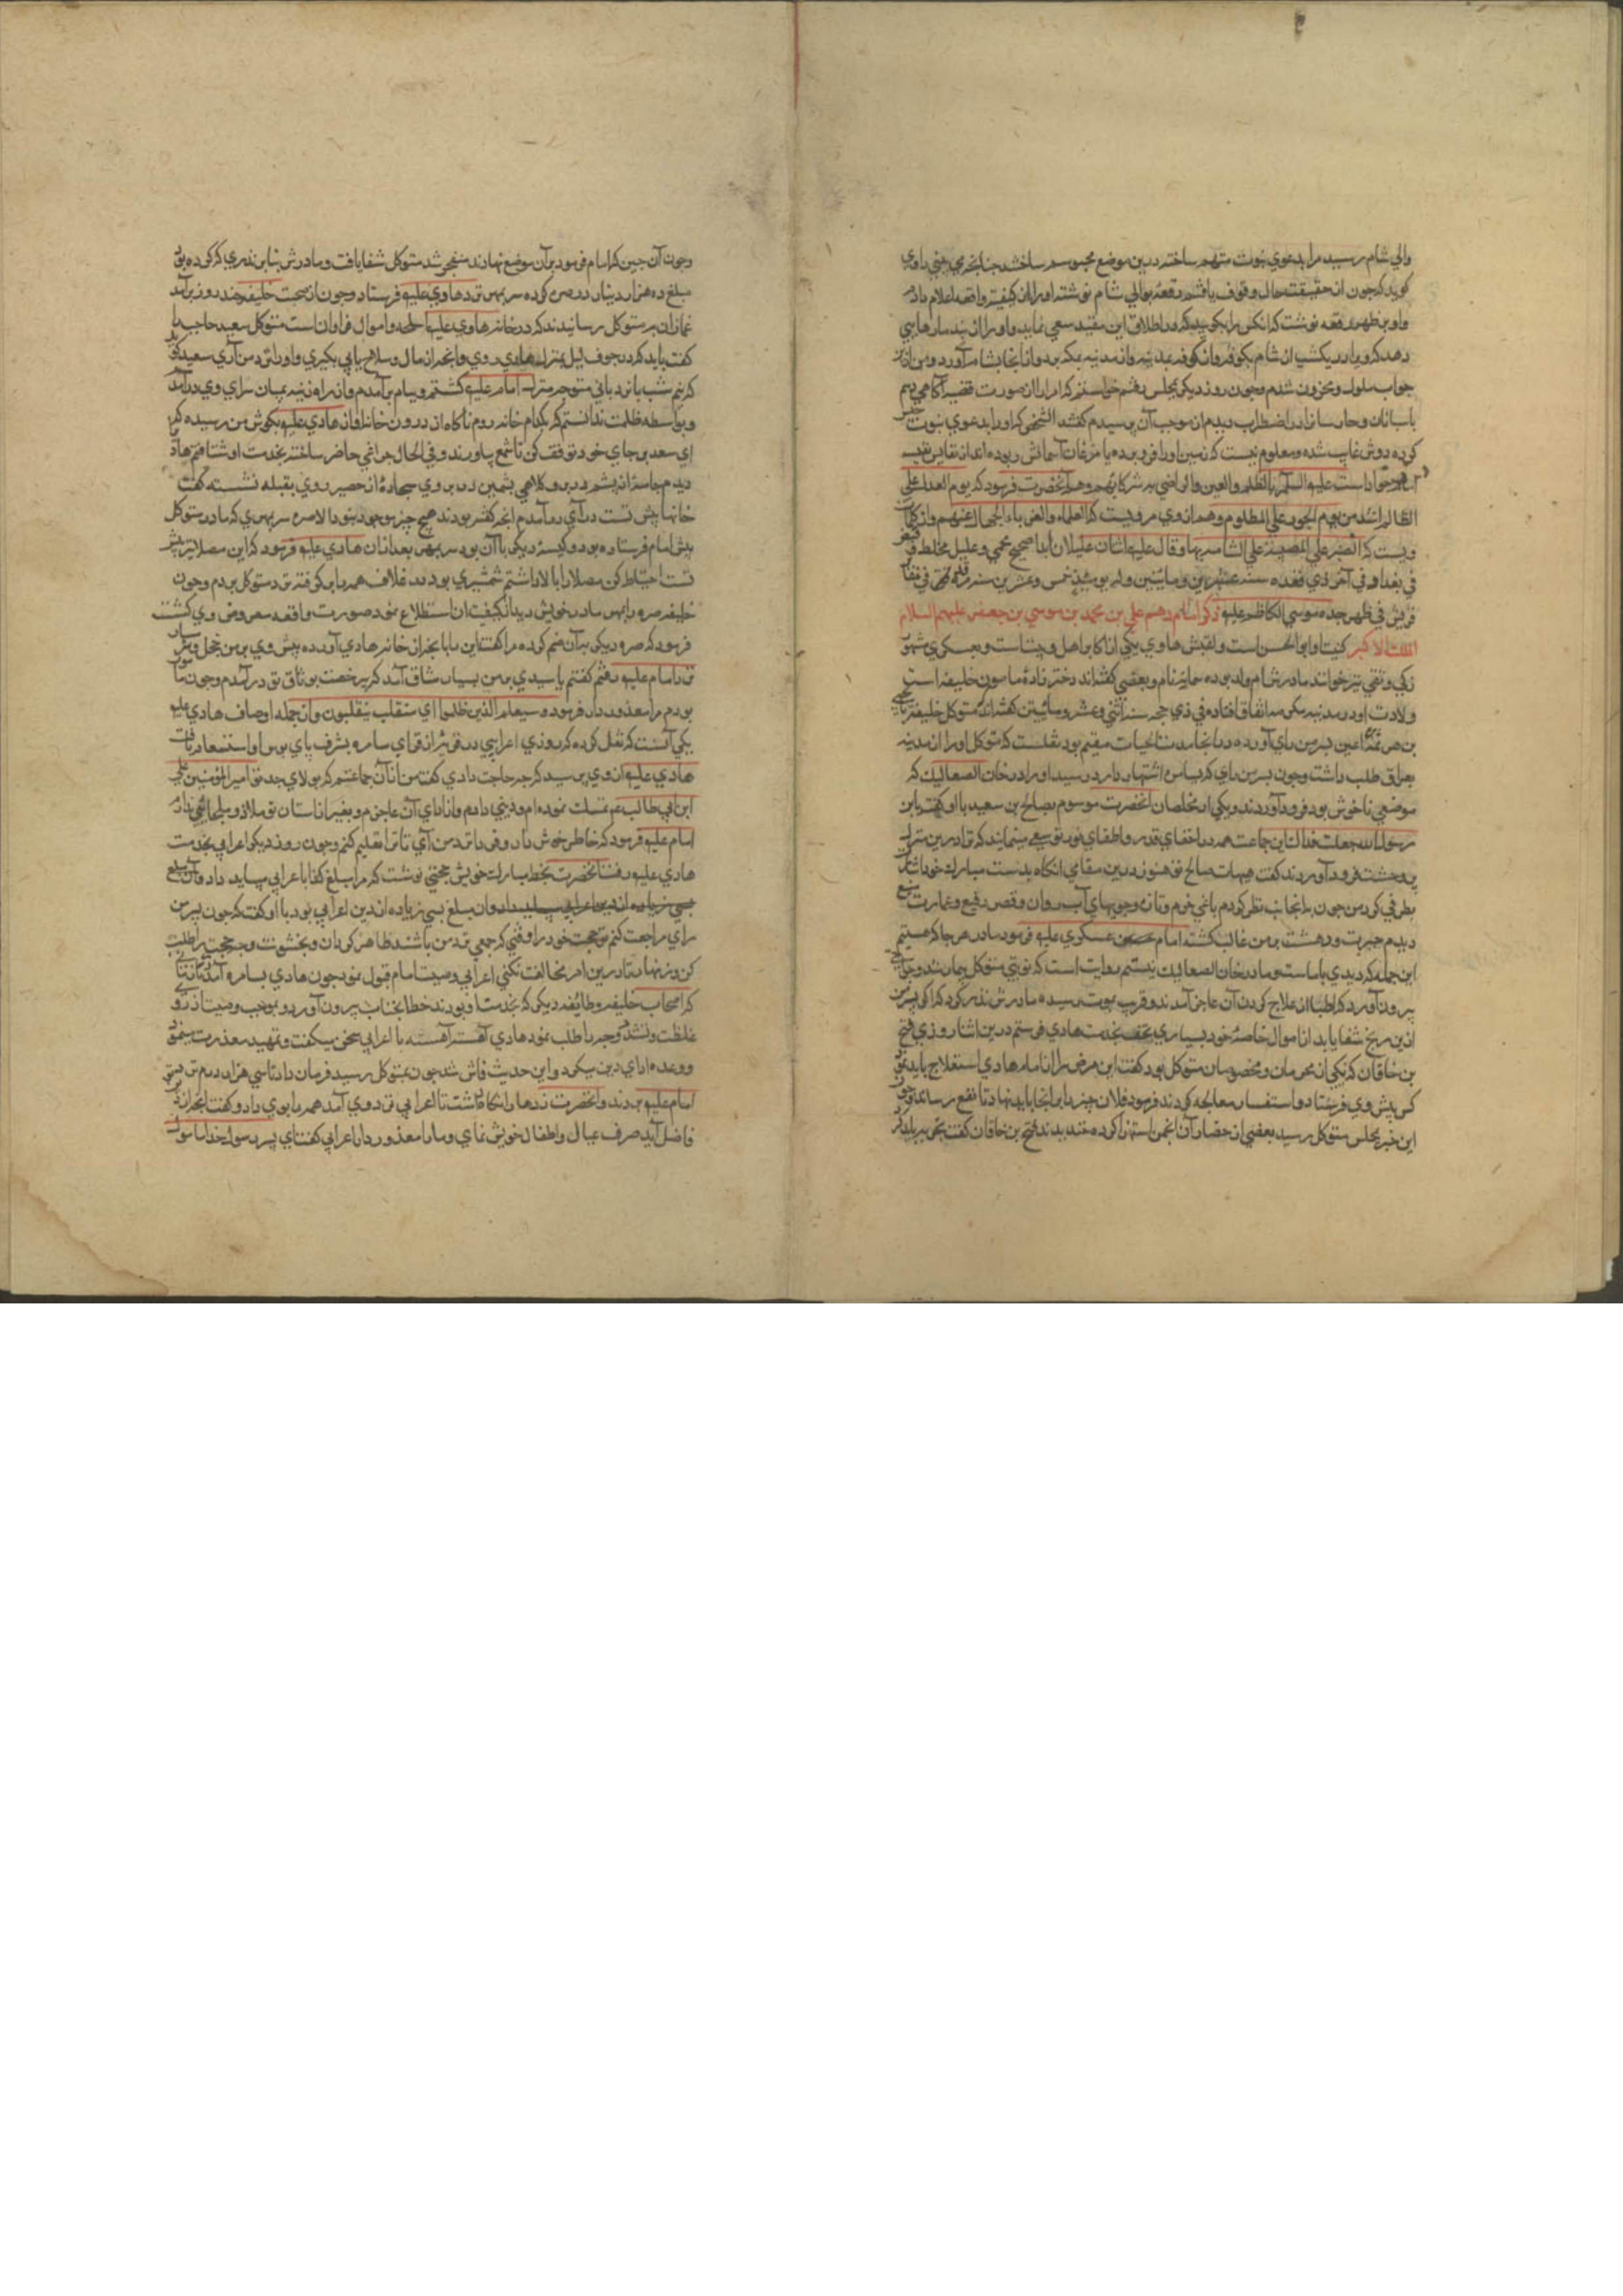 والي شام رسيد مرا بدعوي نبوت متهم ساخته درين موضع محبوسم ساختند چنانچه مي بيني راوي
كويد كه چون از حقيقت حال وقوف يافتم رقعه بوالي شام نوشته او را از كيفيت واقعه اعلام دادم
واو بر ظهر رقعه نوشت كه انكس را بكوييد كه در اطلاق اين مقيد سعي نمايد واو را از بند ما رهايي
دهد كه ويرا در يكشب از شام بكوفه واز كوفه بمدينه واز مدينه بمكه برد واز انجا بشام آورد ومن ازين
جواب ملول ومحزون شدم وچون روز ديكر بمجلس رفتم خواستم كه او را از صورت قضيه آكاهي دهم
پاسبانان وحارسانرا در اضطراب ديدم از موجب آن پرسيدم كفتند الشخصي كه او را بدعوي نبوت
كرده دوش غايب شده ومعلوم نيست كه زمين او را فرو برده يا مرغان آسمانش ربوده اند از نفايس نفيسه
امام جواد است عليه السلم كه الظلم والمعين والراضي به شركائهم وهم آنحضرت فرمود كه يوم العدل علي
الظالم اشد من يوم الجور علي المظلوم وهم از وي مرويست كه العلماء والغرباء الجهال عنهم واز كلمات
ويست كه الصبر علي المصيبة علي الشامت بها وقال عليه اثنان عليلان ابدا صحيح محمي وعليل مخلط
في بغداد في آخر ذي قعده سنه عشرين ومايتين وله يومئذ خمس وعشرين سنه
قريش في ظهر جده موسي الكاظم عليه ذكر امام دهم علي بن محمد بن موسي بن جعفر عليهم السلام
الملك الاكبر كنيت او ابو الحسن است ولقبش هادي يكي از اكابر اهل وبيت است وبعسكري مشهور
زكي ونقي نيز خوانند مادرش ام ولد بوده سمانه نام وبعضي كفته اند دختر زاده مامون خليفه است
ولادت او در مدينه سكينه اتفاق افتاده في ذي حجه سنه اثني وعشر ومايتين كفته اند متوكل خليفه
بن هرثمه اعين بسر من راي آورده در انجا مدت الحيات مقيم بود نقلست كه متوكل او را از مدينه
بعراق طلب داشت وچون بسر من راي كه بسامره اشتهار دارد رسيد او را در خان الصعاليك كه
موضعي ناخوش بود فرود آوردند ويكي از مخلصان آنحضرت موسوم بصالح بن سعيد با او كفت يا ابن
رسول الله جعلت فداك اين جماعت همه در اخفاي قدر واطفاي نور تو سعي مينمايند كه ترا درين منزل
پر وحشت فرود آوردند كفت هيهات صالح تو هنوز درين مقامي انكاه بدست مبارك خود اشارت
بطرفي كرد من چون بدانجانب نظر كردم باغي خرم وتازه وجويهاي آب روان وقصر رفيع وعمارت
ديدم حيرت ودهشت بر من غالب كشته امام عسكري عليه فرمود ما در هر جا كه هستيم
اين جمله كه ديدي با ماست وما در خان الصعاليك نيستيم روايت است كه نوبتي متوكل بيمار شد
بيرون آورد كه اطبا از علاج كردن آن عاجز آمدند وقريب بموت رسيده مادرش نذر كرد كه اكر پسر من
ازين رنج شفا يابد از اموال خاصهٔ خود بسياري بتحفه بخدمت هادي فرستم درين اثنا روزي فتح
بن خاقان كه يكي از محرمان ومخصوصان متوكل بود كفت اين مرض را از امام هادي استعلاج بايد نمود
كس پيش وي فرستاد واستفسار معالجه كردند فرمود فلان چيز را بر انجا بايد نهاد تا نفع رساند وچون
اين خبر بمجلس متوكل رسيد بعضي از حضار آن انجمن استهزا كرده خنديدند فتح بن خاقان كفت
وچون آن چيز كه امام فرمود بر آن موضع نهادند منفجر شد متوكل شفا يافت ومادرش بنا بر نذري كه كرده بود
مبلغ ده هزار دينار در صره كرده سر بمهر نزد هادي عليه فرستاد وچون از صحت خليفه چند روز بر آمد
غمازان بمتوكل رسانيدند كه در خانه هادي عليه اسلحه واموال فراوان است متوكل سعيد حاجب را
كفت بايد كه در جوف ليل بمنزل هادي روي وانچه از مال وسلاح يابي بكيري واو را نزد من آري سعيد كويد
كه نيم شب با نردباني متوجه منزل امام عليه كشتم وببام بر آمدم واز راه زينه بميان سراي وي در آمد
وبواسطه ظلمت ندانستم كه بكدام خانه روم ناكاه از درون خانه آواز هادي عليه بكوش من رسيده كه
اي سعد بر جاي خود توقف كن تا شمع بياورند وفي الحال چراغي حاضر ساخته بخدمت او شتافتم
ديدم جامهٔ از پشم در بر وكلاهي پشمين در بر وي سجادهٔ از حصير روي بقبله نشسته كفت
خانها پيش تست در آي در آمدم انچه كفته بودند هيچ چيز موجود نبود الا صره سر بمهري كه مادر متوكل
پيش امام فرستاده بود وكيسهٔ ديكر با آن بود سر بمهر بعد از ان هادي عليه فرمود كه اين مصلا نيز پيش
تست احتياط كن مصلا را بالا داشتم شمشيري بود در غلاف همه را بر كرفته نزد متوكل بردم وچون
خليفه صره را بمهر مادر خويش ديد از كيفيت ان استطلاع نمود صورت واقعه معروض وي كشت
فرمود كه صره ديكر بر آن ضم كرده مرا كفت اين را با انچه از خانه هادي آورده پيش وي بر من خجل
نزد امام عليه رفتم كفتم يا سيدي بر من بسيار شاق آمد كه بي رخصت بوثاق تو در آمدم وچون مامور
بودم مرا معذور دار فرمود وسيعلم الذين ظلموا اي منقلب ينقلبون واز جمله اوصاف هادي عليه
يكي آنست كه نقل كرده كه روزي اعرابي در قريه از قراي سامره بشرف پاي بوس او استسعاد يافت
هادي عليه از وي پرسيد كه چه حاجت داري كفت من از آن جماعتم كه بولاي جد تو امير المومنين علي
ابن ابي طالب عم تمسك نموده ام وديني دارم واز اداي آن عاجزم وبغير از استان تو ملاذ وملجائي ندارم
امام عليه فرمود كه خاطر خوش دار وفردا نزد من آي تا ترا تعليم كنم وچون روز ديكر اعرابي بخدمت
هادي عليه رفت آنحضرت بخط مبارك خويش حجتي نوشت كه مرا مبلغ كذا باعرابي ميبايد داد وآن مبلغ
بسي زياده از دين اعرابي وان مبلغ بسي زياده از دين اعرابي بود با او كفت كه چون بسر من
راي مراجعت كنم تو حجت خود را وقتي كه جمعي نزد من باشند ظاهر كردان وبخشونت وجه حجت را طلب
كن وزنهار تا درين امر مخالفت نكني اعرابي وصيت امام قبول نمود چون هادي بسامره آمد
كه اصحاب خليفه وطايفه ديكر كه بخدمت او بودند خط انجناب بيرون آورد وبموجب وصيت از روي
غلظت وتشدد وجه را طلب نمود هادي آهسته آهسته با اعرابي سخن ميكفت وتمهيد معذرت مينمود
ووعده اداي دين ميكرد واين حديث فاش شد چون بمتوكل رسيد فرمان داد تا سي هزار درم نزد
امام عليه بردند وآنحضرت زرها را نكاه داشت تا اعرابي نزد وي آمد همه را بوي داد وكفت انچه از
فاضل آيد صرف عيال واطفال خويش نماي وما را معذور دار اعرابي كفت اي پسر رسول خدا